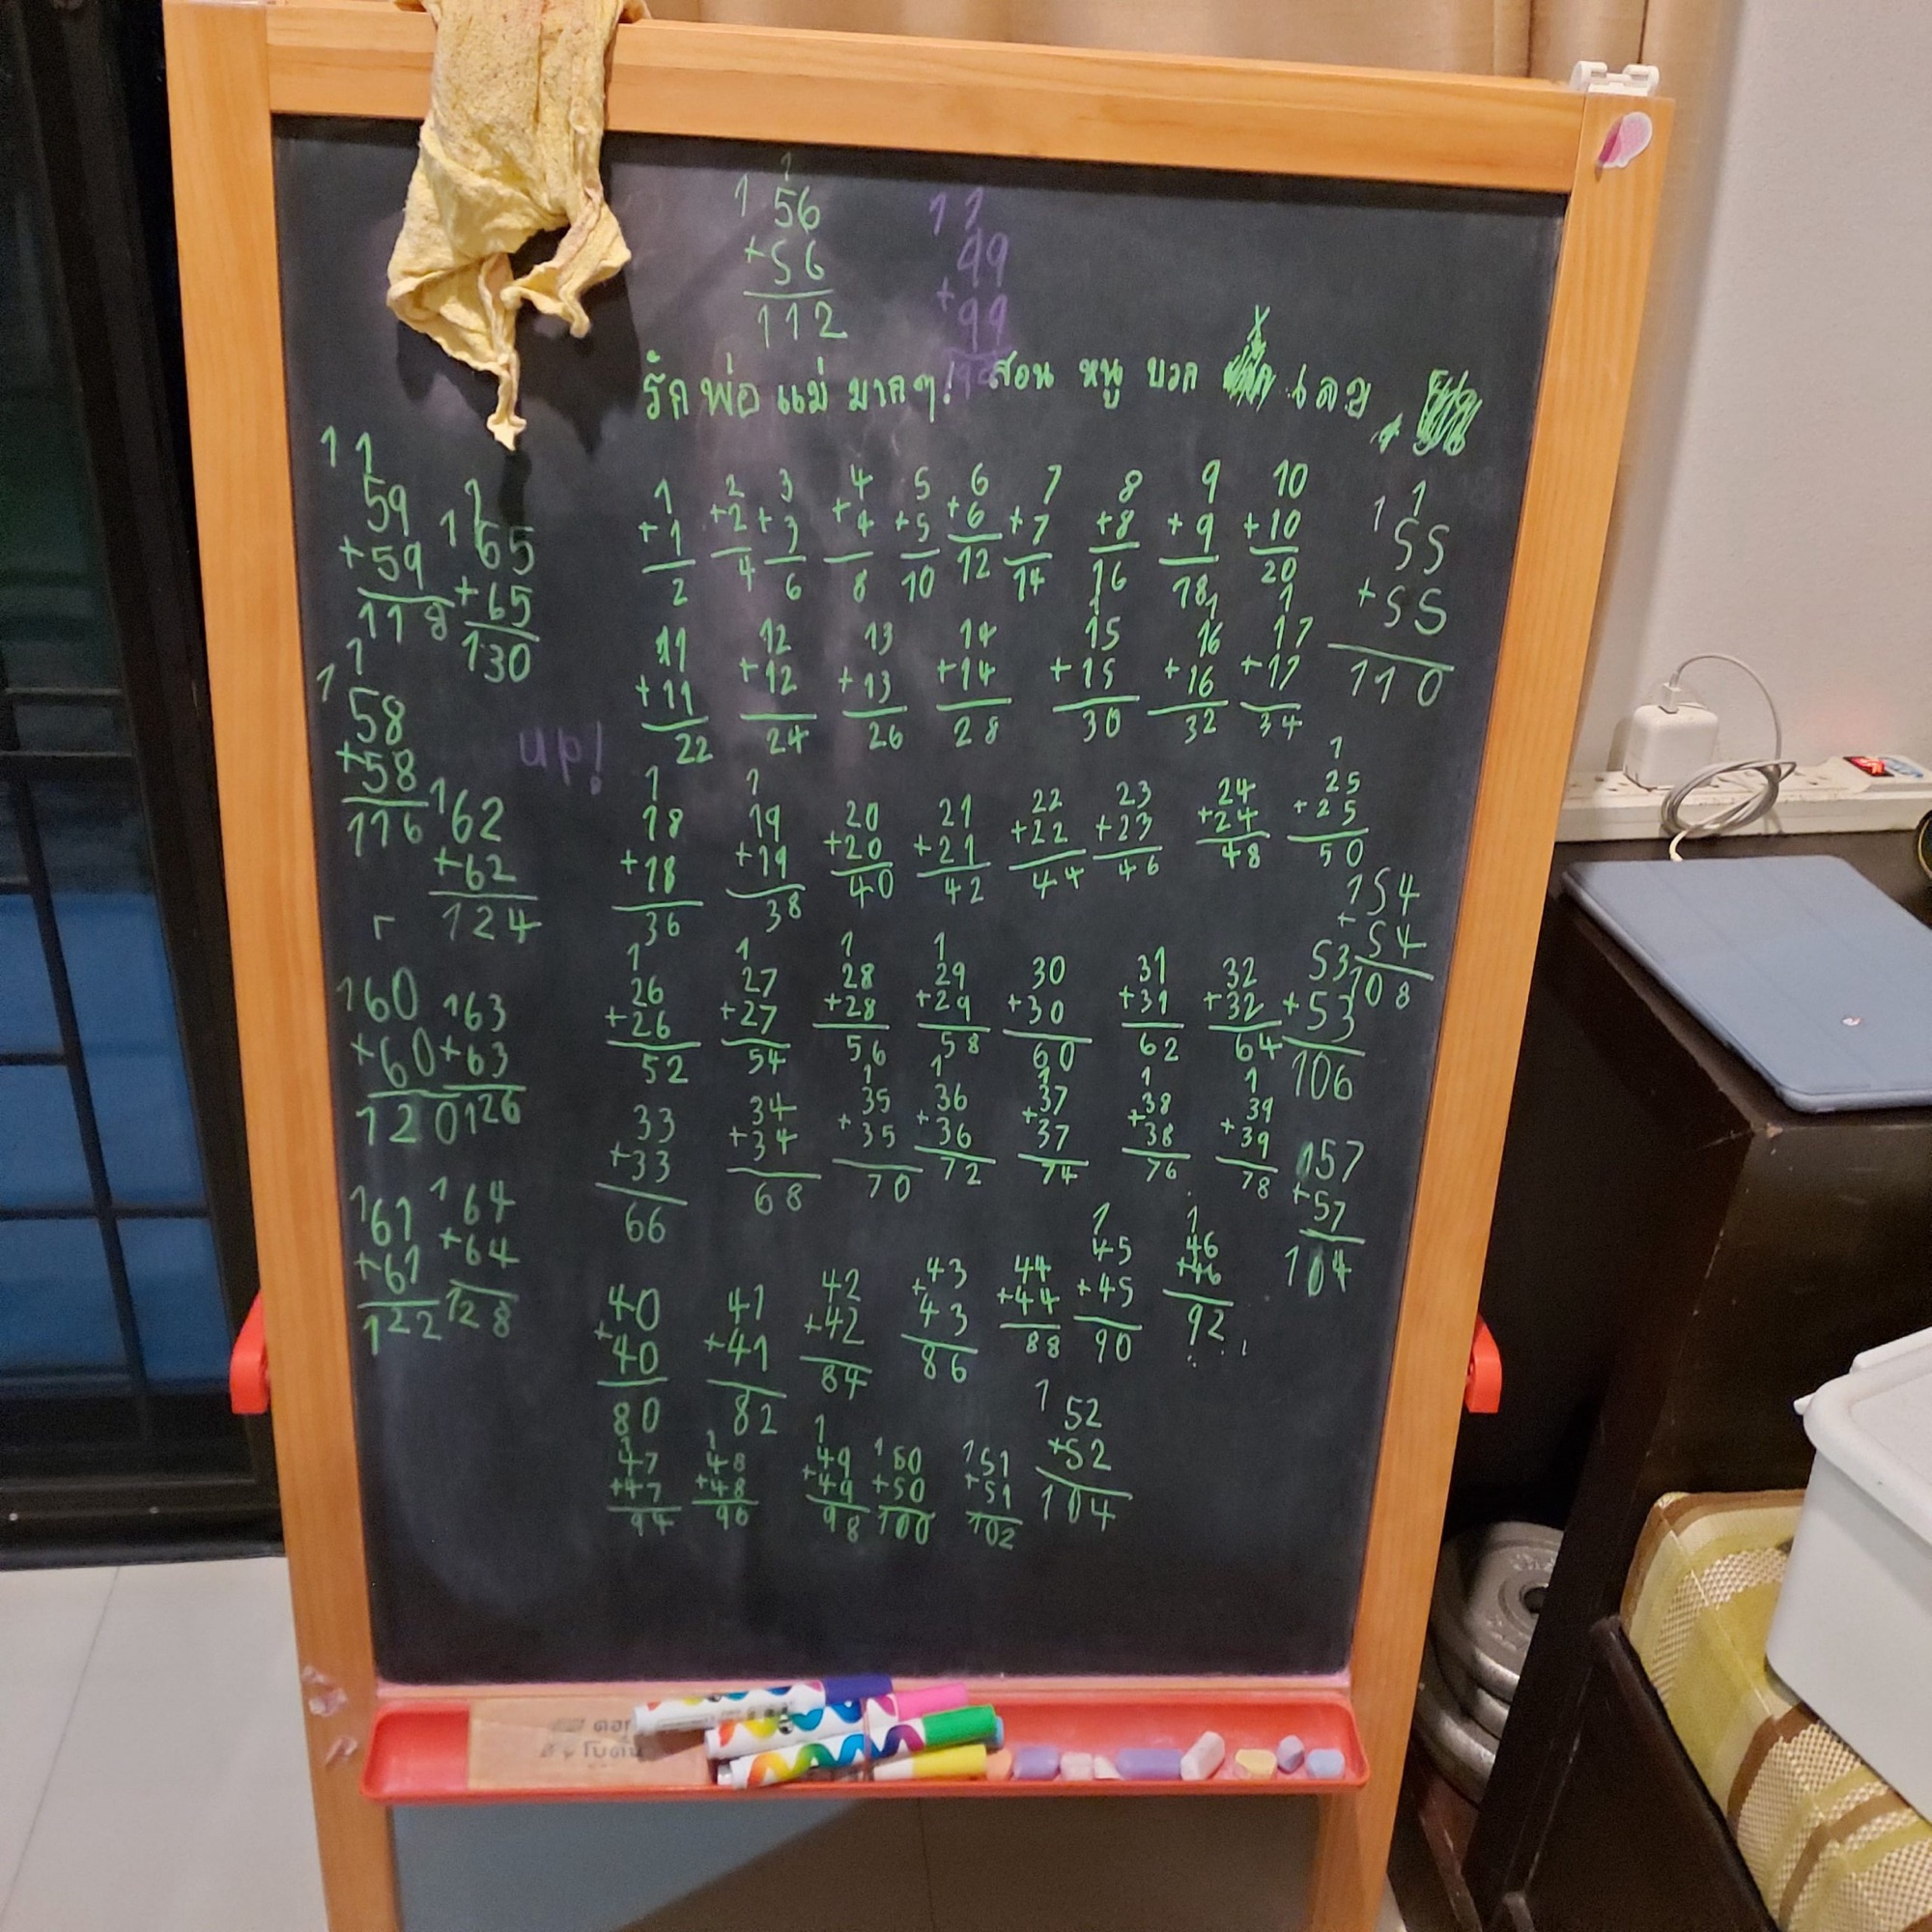 1
1 56
+56
112
11
99
+99
รักพ่อแม่มากๆ! สอน หนู บวก เลข
11
59
+59
118
1
165
+65
130
1
1 58
+58
116
up!
162
+62
124
160
+60
120
163
+63
126
161
+61
122
164
+64
128
1 2 3 4 5 6 7 8 9 10
+1 +2 +3 +4 +5 +6 +7 +8 +9 +10
2 4 6 8 10 12 14 16 18 20
1 1 1
11 12 13 14 15 16 17
+11 +12 +13 +14 +15 +16 +17
22 24 26 28 30 32 34
1 1 1
18 19 20 21 22 23 24 25
+18 +19 +20 +21 +22 +23 +24 +25
36 38 40 42 44 46 48 50
1 1 1 1
26 27 28 29 30 31 32 53
+26 +27 +28 +29 +30 +31 +32 +53
52 54 56 58 60 62 64 106
1 1 1 1 1
33 34 35 36 37 38 39
+33 +34 +35 +36 +37 +38 +39
66 68 70 72 74 76 78
1 1
40 41 42 43 44 45 46
+40 +41 +42 +43 +44 +45 +46
80 82 84 86 88 90 92
1 1 1
47 48 49 150 151 1 52
+47 +48 +49 +50 +51 +52
94 96 98 100 102 104
1
1 55
+55
110
154
+54
108
157
+57
104
โบตั๋น